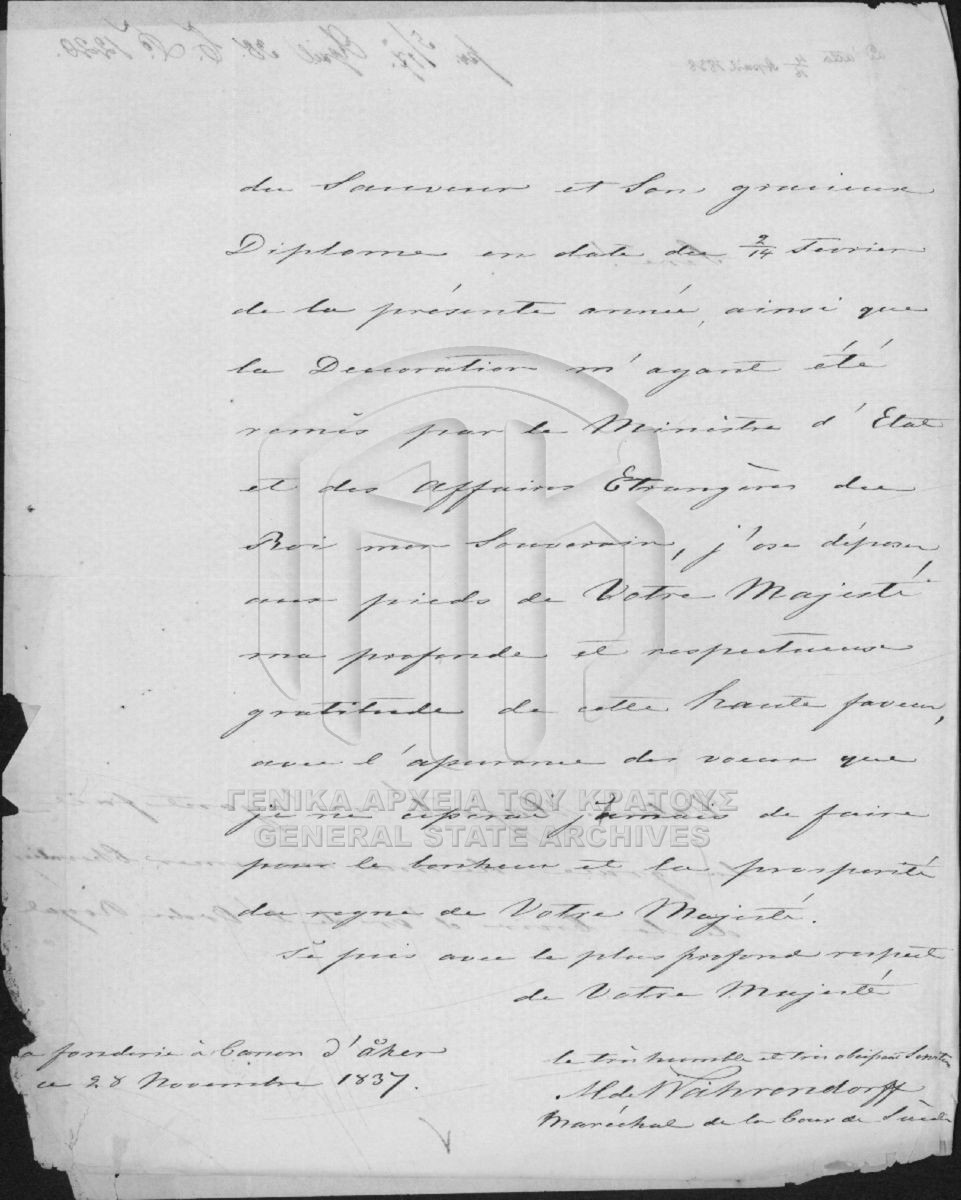 du Sauveur et Son gracieux
Diplome en date du 2/14 Fevrier
de la présente année, ainsi que
la Decoration m'ayant été
remis par le Ministre d'Etat
et des Affaires Etrangères du
Roi mon Souverain, j'ose déposer,
aux pieds de Votre Majesté
ma profonde et respectueuse
gratitude de cette haute faveur,
avec l'apurance des voeux que
ΓΕΝΙΚΑ ΑΡΧΕΙΑ ΤΟΥ ΚΡΑΤΟΥΣ
je ne jamais de faire
GENERAL STATE ARCHIVES
pour le bonheur et la prosperité
du regne de Votre Majesté.
Je suis avec le plus profond respect
de Votre Majesté
a fonderie à Canon d'åker
ce 28 Novembre 1837.
le très humble et très obeipant
M. de Wahrendorff
Maréchal de la Cour de Suède